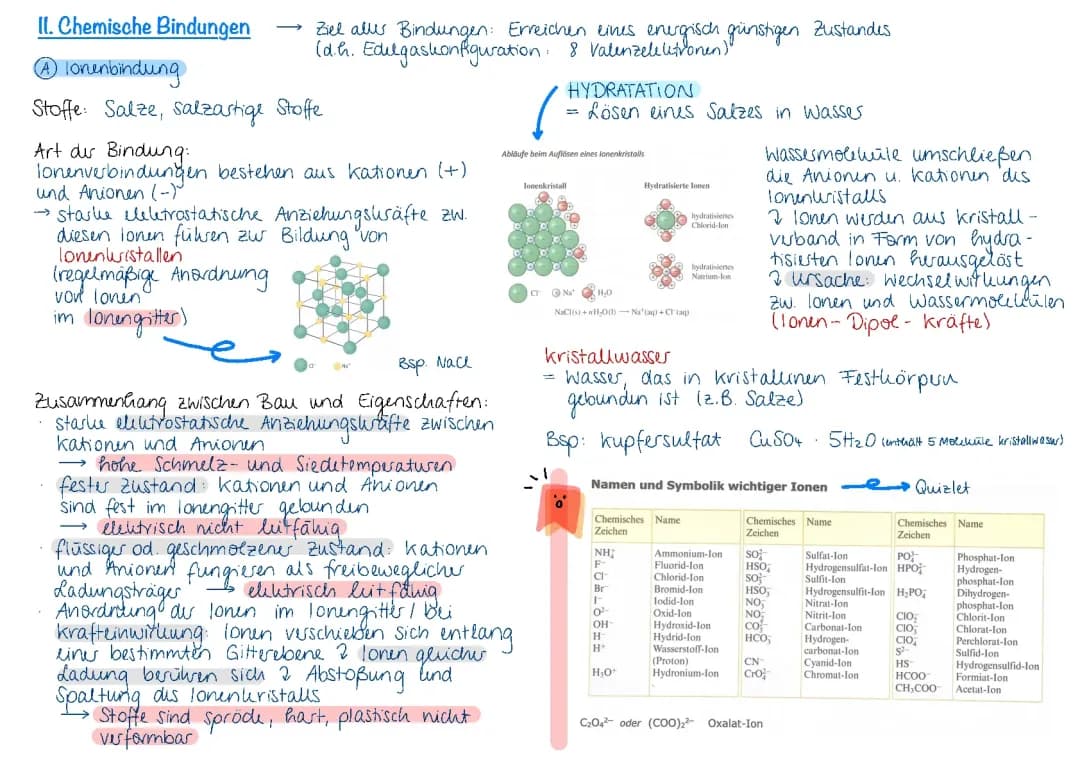 II. Chemische Bindungen → Ziel aller Bindungen: Erreichen eines energisch günstigen Zustandes
(d.h. Edelgaskonfiguration: 8 Valenzelektronen)
A Ionenbindung
Stoffe: Salze, salzartige Stoffe
Art der Bindung:
Ionenverbindungen bestehen aus Kationen (+)
und Anionen (-)
→ starke elektrostatische Anziehungskräfte zw.
diesen Ionen führen zur Bildung von
Ionenkristallen
(regelmäßige Anordnung
von Ionen
im Ionengitter)
Cl⁻ Na⁺
Bsp. NaCl
Zusammenhang zwischen Bau und Eigenschaften:
· starke elektrostatische Anziehungskräfte zwischen
Kationen und Anionen
→ hohe Schmelz- und Siedetemperaturen
· fester Zustand: Kationen und Anionen
sind fest im Ionengitter gebunden
→ elektrisch nicht leitfähig
· flüssiger od. geschmolzener Zustand: Kationen
und Anionen fungieren als freibeweglicher
Ladungsträger → elektrisch leitfähig
· Anordnung der Ionen im Ionengitter / bei
Krafteinwirkung: Ionen verschieben sich entlang
einer bestimmten Gitterebene ↷ Ionen gleicher
Ladung berühren sich ↷ Abstoßung und
Spaltung des Ionenkristalls
→ Stoffe sind spröde, hart, plastisch nicht
verformbar
HYDRATATION
= Lösen eines Salzes in Wasser
Abläufe beim Auflösen eines Ionenkristalls
Ionenkristall Hydratisierte Ionen
hydratisiertes
Chlorid-Ion
hydratisiertes
Natrium-Ion
Cl⁻ Na⁺ H₂O
NaCl(s) + nH₂O(l) → Na⁺(aq) + Cl⁻(aq)
Wassermoleküle umschließen
die Anionen u. Kationen des
Ionenkristalls
↷ Ionen werden aus Kristall-
verband in Form von hydra-
tisierten Ionen herausgelöst
↷ Ursache: Wechselwirkungen
zw. Ionen und Wassermolekülen
(Ionen-Dipol-Kräfte)
Kristallwasser
= Wasser, das in kristallinen Festkörpern
gebunden ist (z.B. Salze)
Bsp: Kupfersulfat CuSO₄ · 5H₂O (enthält 5 Moleküle Kristallwasser)
Namen und Symbolik wichtiger Ionen → Quizlet
Chemisches Zeichen Name
NH₄⁺ Ammonium-Ion
F⁻ Fluorid-Ion
Cl⁻ Chlorid-Ion
Br⁻ Bromid-Ion
I⁻ Iodid-Ion
O²⁻ Oxid-Ion
OH⁻ Hydroxid-Ion
H⁻ Hydrid-Ion
H⁺ Wasserstoff-Ion
(Proton)
H₃O⁺ Hydronium-Ion
Chemisches Zeichen Name
SO₄²⁻ Sulfat-Ion
HSO₄⁻ Hydrogensulfat-Ion
SO₃²⁻ Sulfit-Ion
HSO₃⁻ Hydrogensulfit-Ion
NO₃⁻ Nitrat-Ion
NO₂⁻ Nitrit-Ion
CO₃²⁻ Carbonat-Ion
HCO₃⁻ Hydrogen-
carbonat-Ion
CN⁻ Cyanid-Ion
CrO₄²⁻ Chromat-Ion
Chemisches Zeichen Name
PO₄³⁻ Phosphat-Ion
HPO₄²⁻ Hydrogen-
phosphat-Ion
H₂PO₄⁻ Dihydrogen-
phosphat-Ion
ClO₂⁻ Chlorit-Ion
ClO₃⁻ Chlorat-Ion
ClO₄⁻ Perchlorat-Ion
S²⁻ Sulfid-Ion
HS⁻ Hydrogensulfid-Ion
HCOO⁻ Formiat-Ion
CH₃COO⁻ Acetat-Ion
C₂O₄²⁻ oder (COO)₂²⁻ Oxalat-Ion